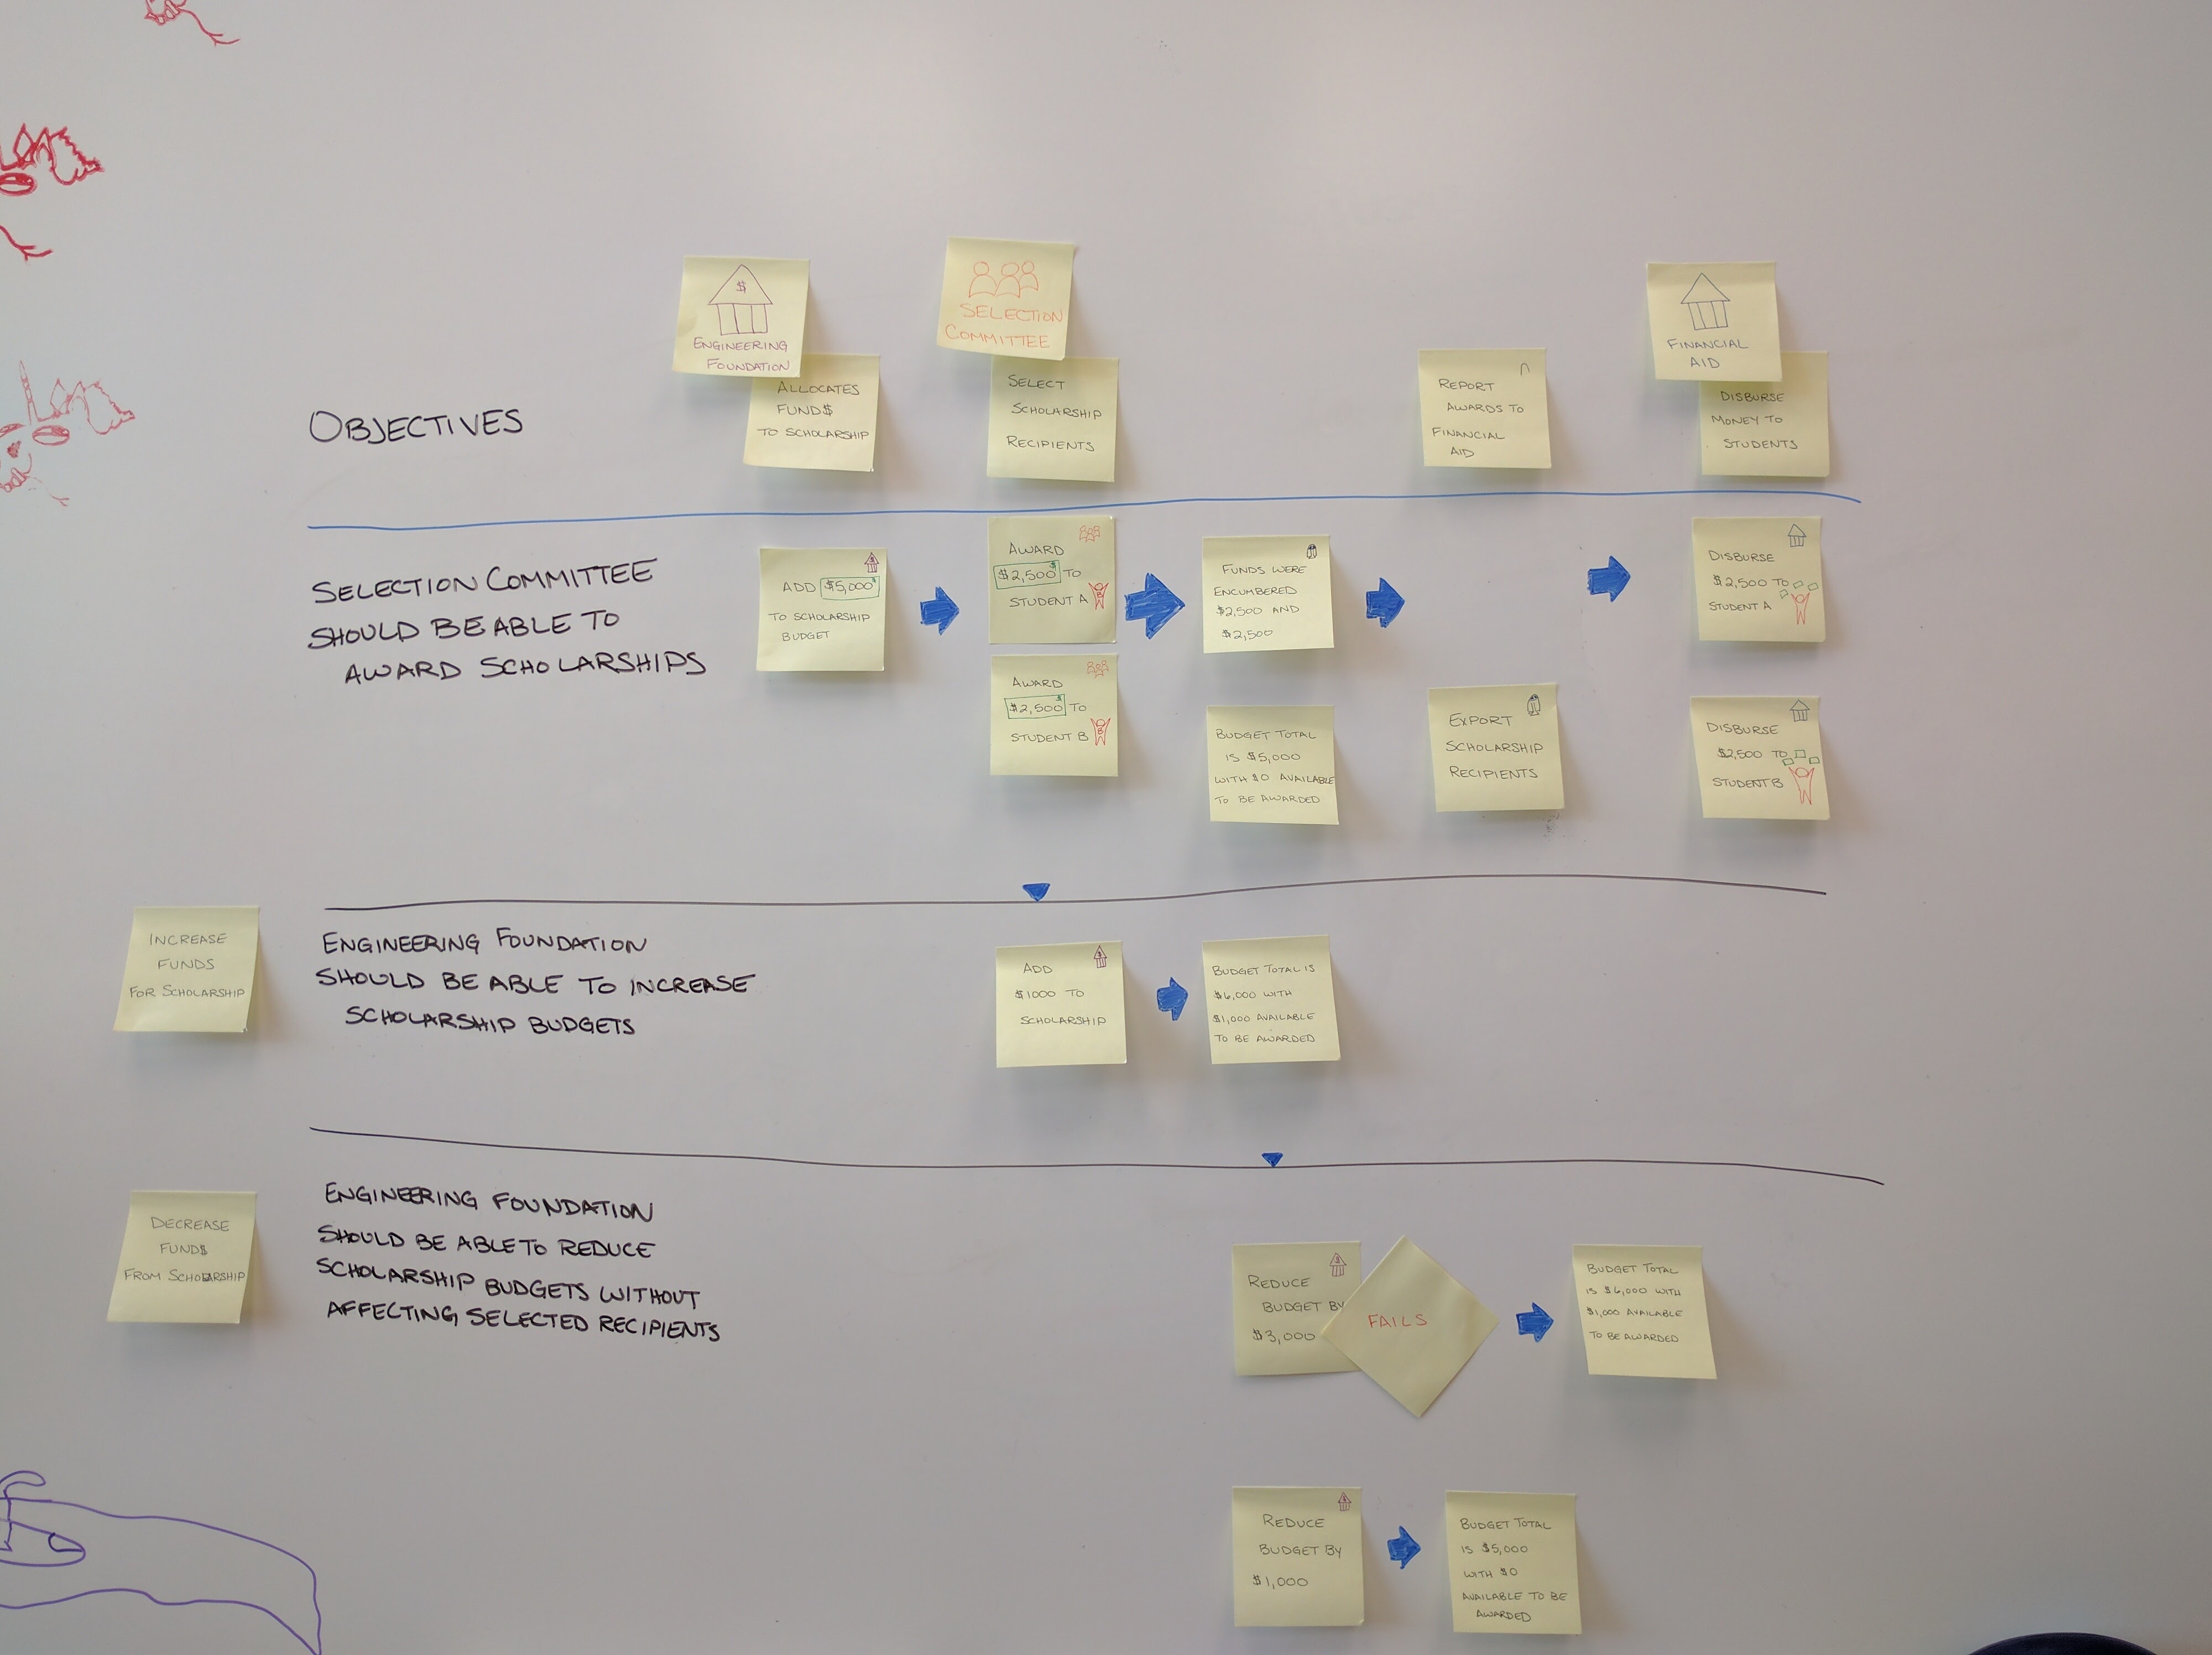 $
ENGINEERING
FOUNDATION
ALLOCATES
FUND$
TO SCHOLARSHIP
SELECTION
COMMITTEE
SELECT
SCHOLARSHIP
RECIPIENTS
REPORT
AWARDS TO
FINANCIAL
AID
FINANCIAL
AID
DISBURSE
MONEY TO
STUDENTS
OBJECTIVES
SELECTION COMMITTEE
SHOULD BE ABLE TO
AWARD SCHOLARSHIPS
$
ADD $5,000 $
TO SCHOLARSHIP
BUDGET
AWARD
$2,500 $ TO
STUDENT A
AWARD
$2,500 $ TO
STUDENT B
B
FUNDS WERE
ENCUMBERED
$2,500 AND
$2,500
BUDGET TOTAL
IS $5,000
WITH $0 AVAILABLE
TO BE AWARDED
EXPORT
SCHOLARSHIP
RECIPIENTS
DISBURSE
$2,500 TO
STUDENT A
DISBURSE
$2,500 TO
STUDENT B
INCREASE
FUNDS
FOR SCHOLARSHIP
ENGINEERING FOUNDATION
SHOULD BE ABLE TO INCREASE
SCHOLARSHIP BUDGETS
$
ADD
$1000 TO
SCHOLARSHIP
BUDGET TOTAL IS
$6,000 WITH
$1,000 AVAILABLE
TO BE AWARDED
DECREASE
FUND$
FROM SCHOLARSHIP
ENGINEERING FOUNDATION
SHOULD BE ABLE TO REDUCE
SCHOLARSHIP BUDGETS WITHOUT
AFFECTING SELECTED RECIPIENTS
$
REDUCE
BUDGET BY
$3,000
FAILS
BUDGET TOTAL
IS $6,000 WITH
$1,000 AVAILABLE
TO BE AWARDED
$
REDUCE
BUDGET BY
$1,000
BUDGET TOTAL
IS $5,000
WITH $0
AVAILABLE TO BE
AWARDED